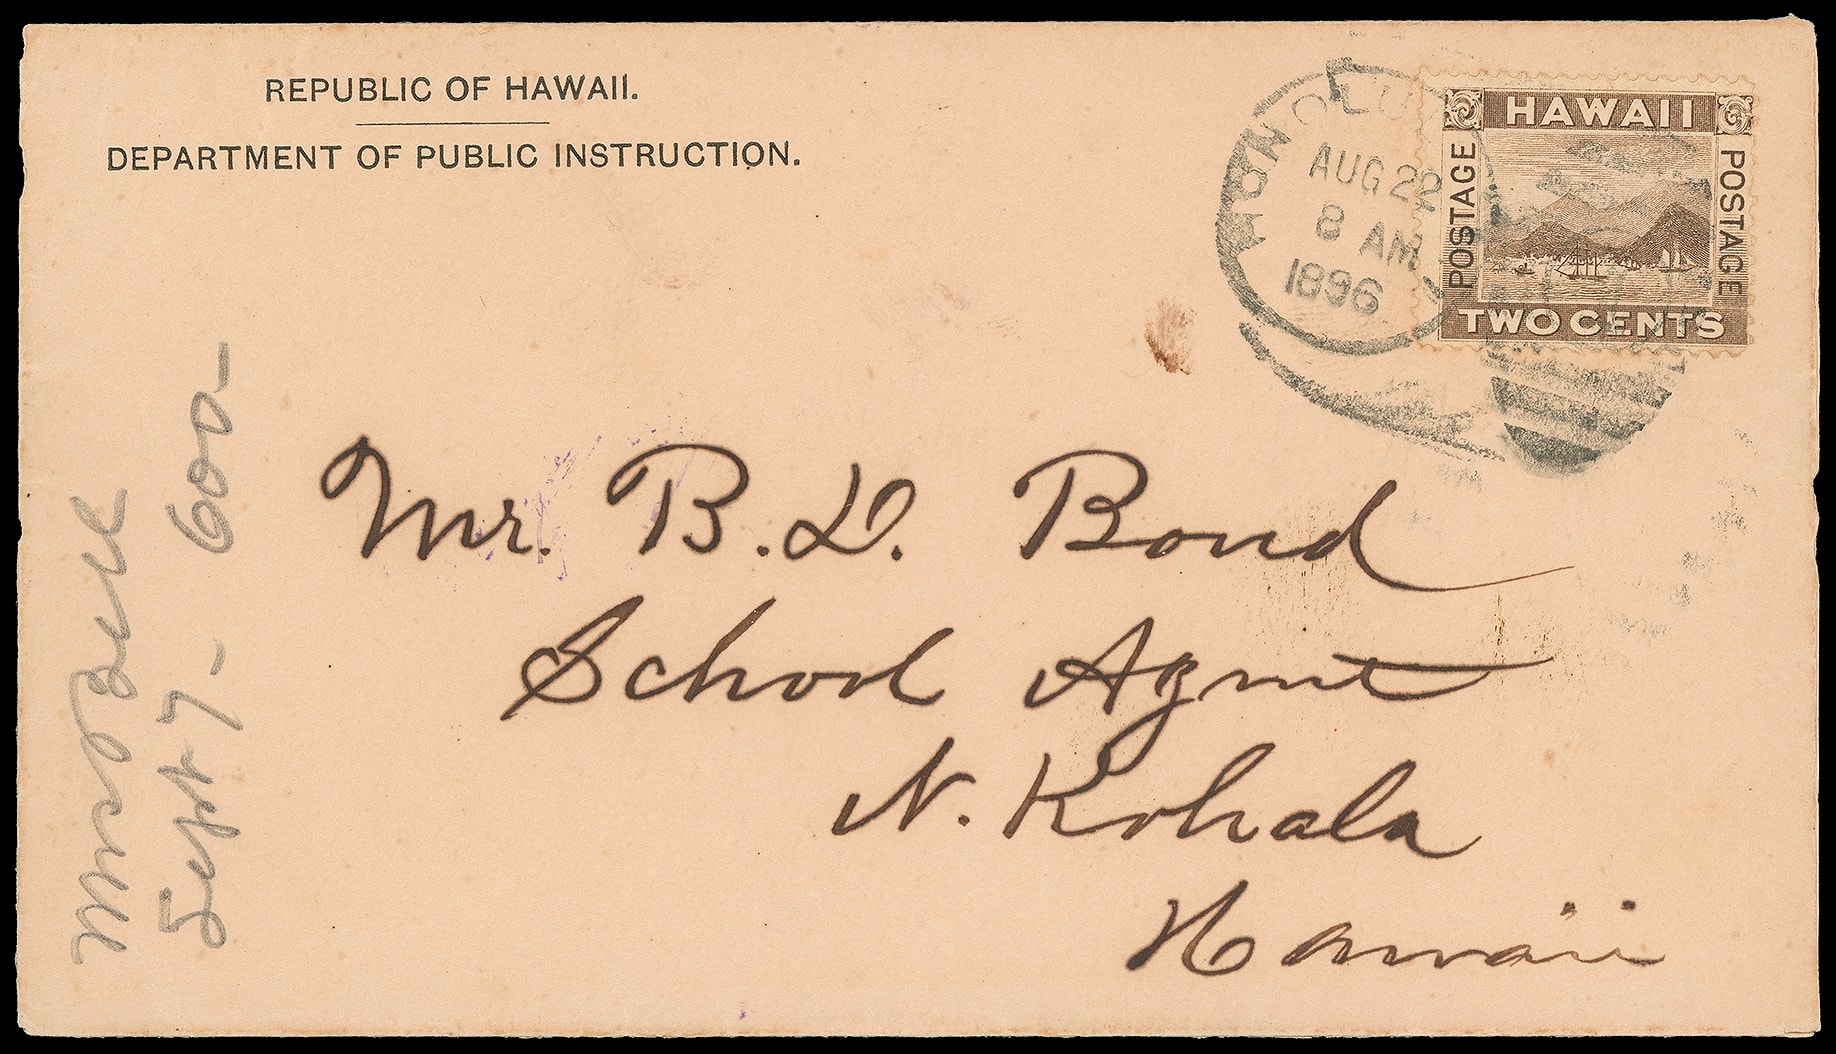 REPUBLIC OF HAWAII.
DEPARTMENT OF PUBLIC INSTRUCTION.
HONOLULU
AUG 22
8 AM
1896
HAWAII
POSTAGE
POSTAGE
TWO CENTS
Mr. B. D. Bond
School Agent
N. Kohala
Hawaii
Sept 7 - 600